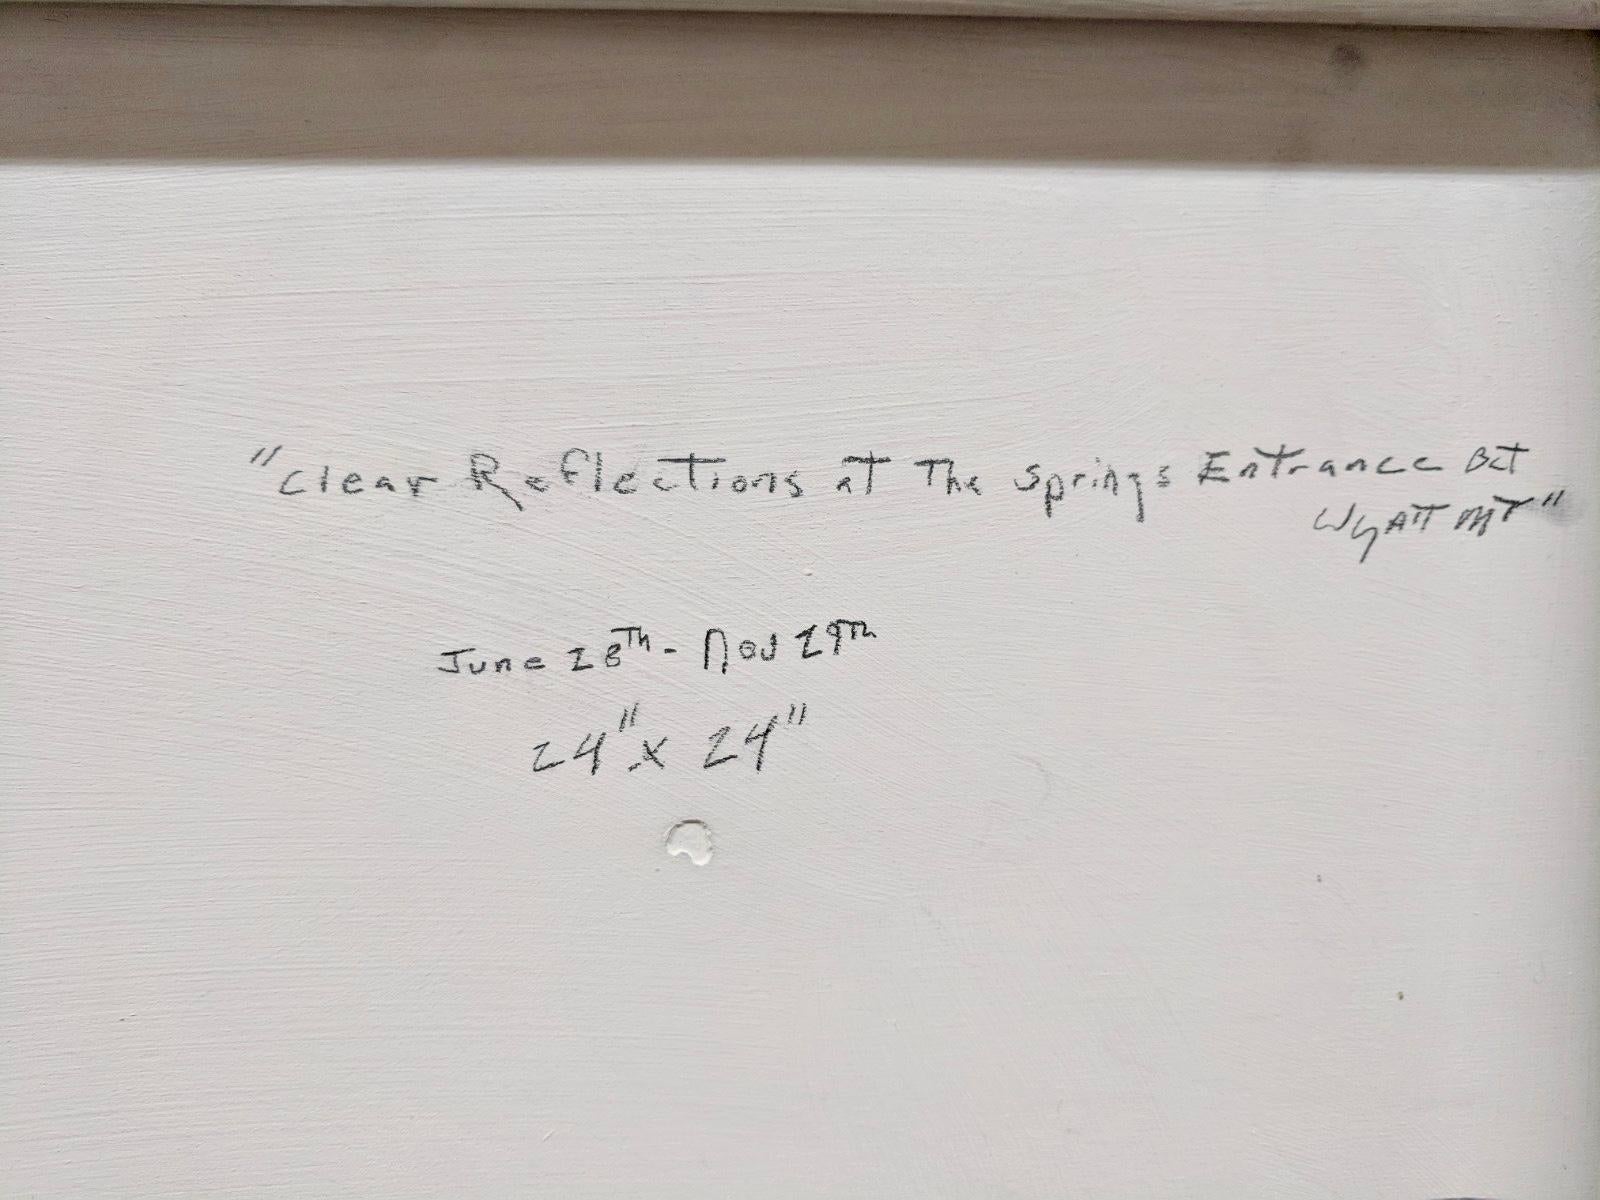 "Clear Reflections at The Springs Entrance Bet
Wyatt MT"
June 28Th - Nov 29Th
24" x 24"